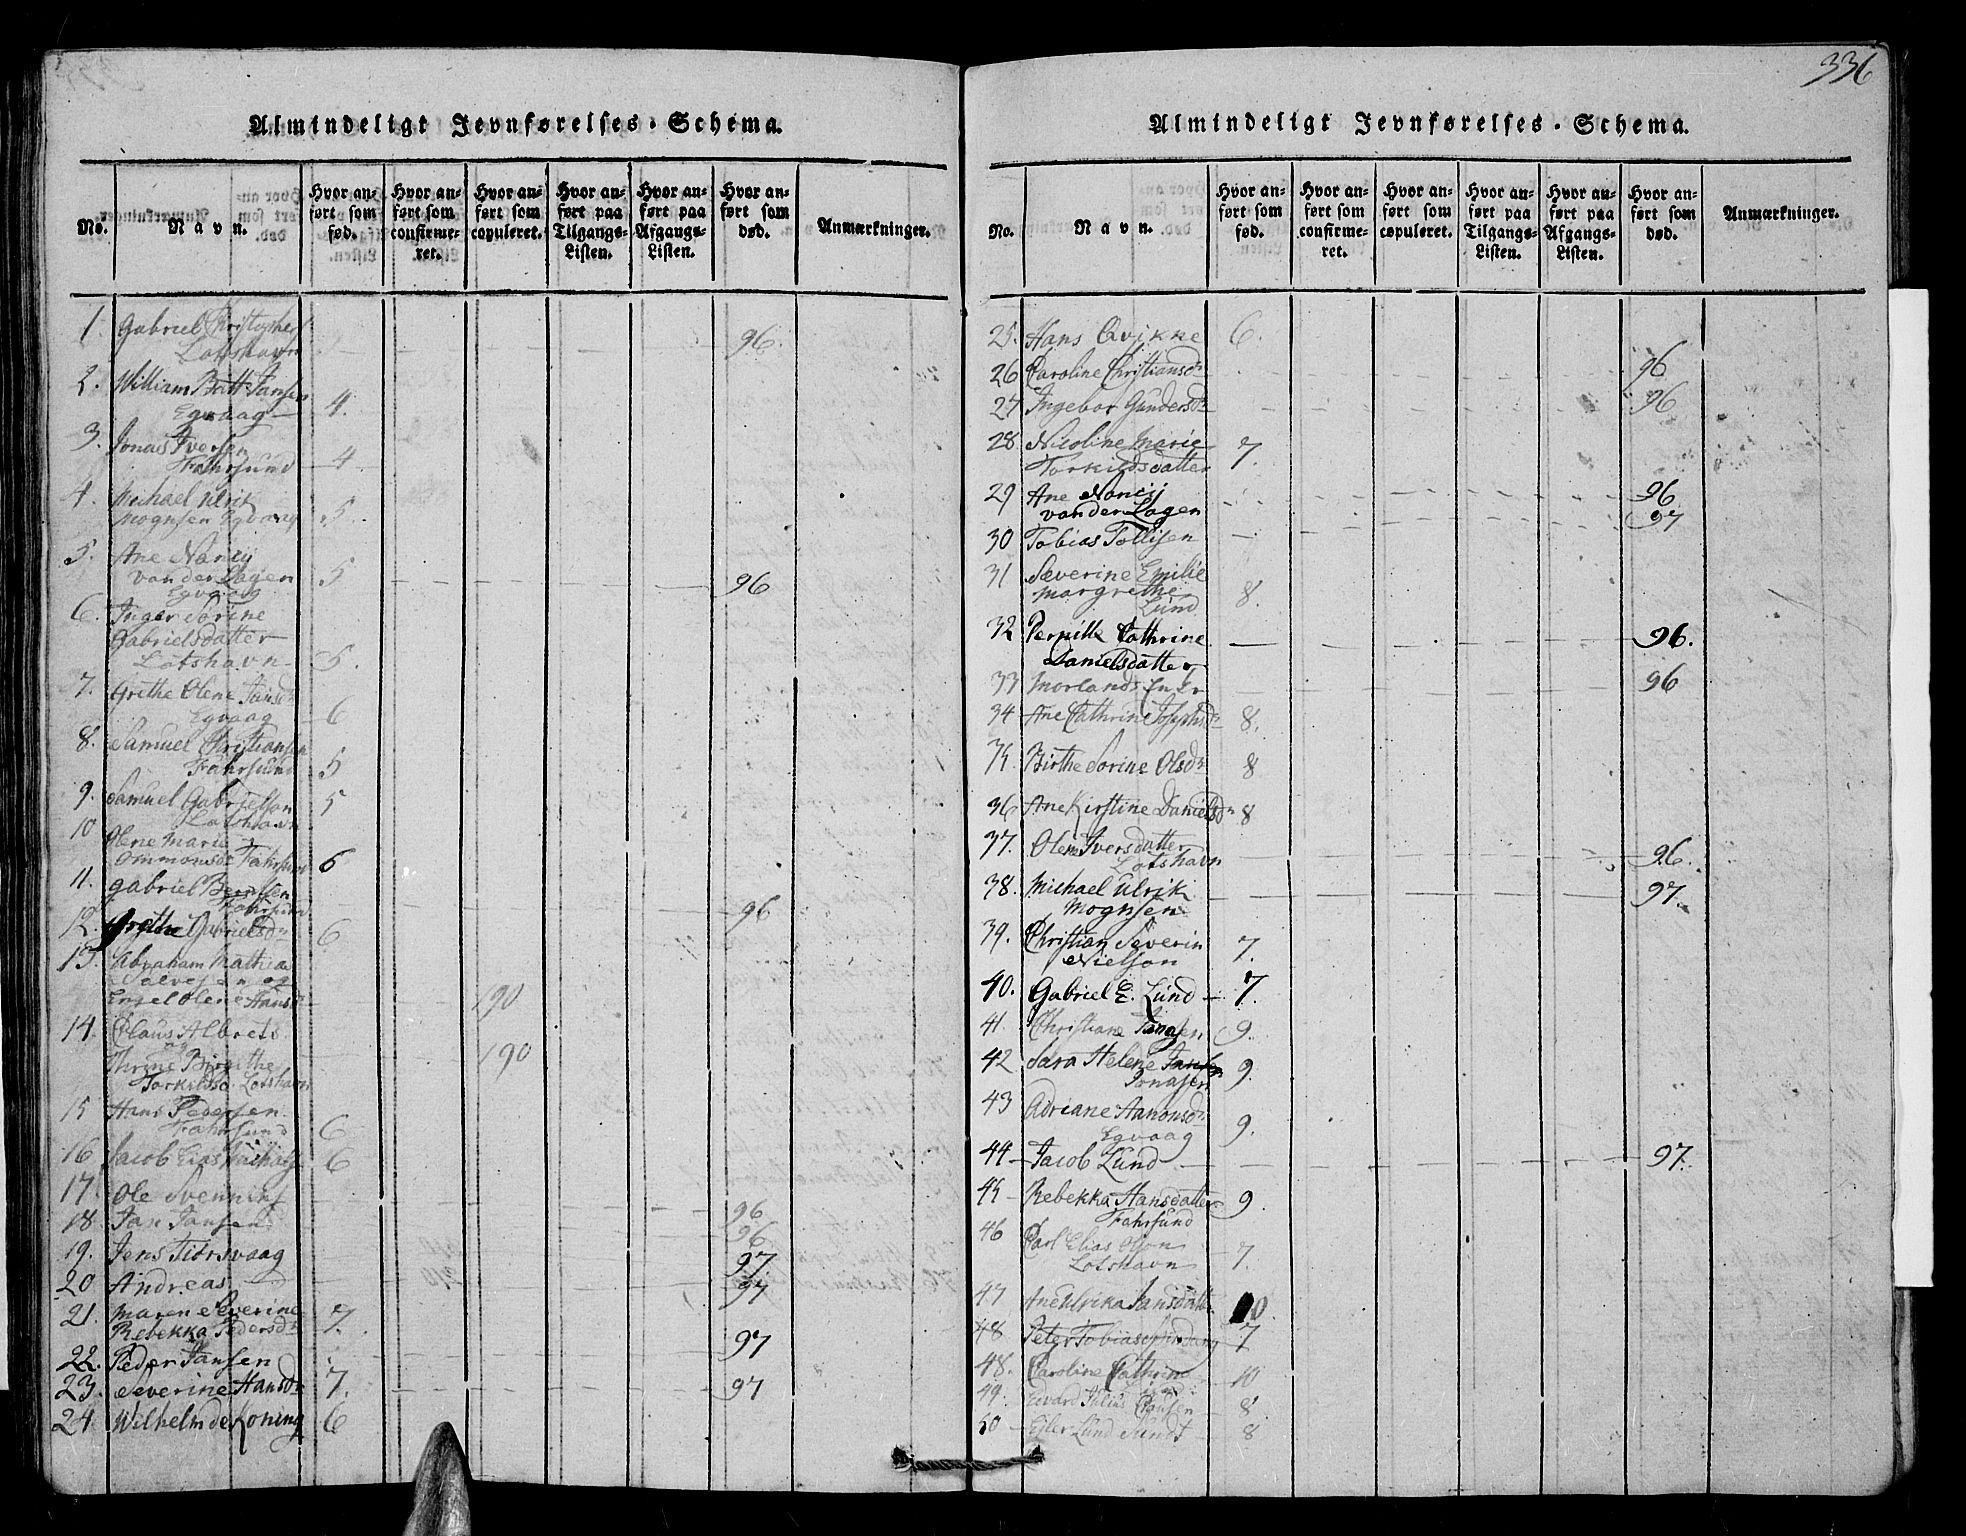 336
Almindeligt Jevnførelses-Schema.
No. Navn. Hvor anført som fød. Hvor anført som confirmeret. Hvor anført som copuleret. Hvor anført paa Tilgangs-Listen. Hvor anført paa Afgangs-Listen. Hvor anført som død. Anmærkninger.
1. Gabriel Christophers
Lotshavn 96.
2. William Batt Jansen
Egvaag 4.
3. Jonas Iversen
Fahrsund 4
4. Michael Ulrik
Mognsen Egvaag 5
5. Ane Nancij
van der Lagen 5 96
Egvaag
6. Inger Sorine
Gabrielsdatter
Lotshavn 5.
7. Grethe Olene Jansd
Egvaag 6
8. Samuel Christiansen
Fahrsund 5
9. Samuel Gabrielson 5
Lotshavn
10 Olene Marie
Ommonsd Fahrsund 6
11. Gabriel Berntsen
Fahrsund 96
12. Grethe Gabrielsd 6
13. Abraham Mathias
Salvesen og
Engel Olene Hansd 190
14. Claus Albrets
og
Thrine Birgithe 190
Torkildsd. Lotshavn
15 Hans Pedersen
Fahrsund 6
16 Jacob Elias 6
17. Ole Svennings 96
18 Jan Jansen 96
19. Jens Tidrsvaag 97
20 Andreas 97
21. Maren Severine
Rebekka Pedersd 7.
22. Peder Jansen 97
23. Severine Hansd 7. 97
24 Wilhelm de Koning 6
Almindeligt Jevnførelses-Schema.
No. Navn. Hvor anført som fød. Hvor anført som confirmeret. Hvor anført som copuleret. Hvor anført paa Tilgangs-Listen. Hvor anført paa Afgangs-Listen. Hvor anført som død. Anmærkninger.
25. Hans Qvikne 6.
26 Caroline Christiansd 96
27 Ingebor Gundersd 96
28 Nicoline Marie
Torkildsdatter 7.
29 Ane Nancij 96
van der Lagen
30 Tobias Tollisen 97
31 Severine Emilie
Margrethe 8.
Lund
32 Pernille Cathrine 96.
Danielsdatter
33 Morlands 96
34 Ane Cathrine Josephsd 8.
35. Birthe Sorine Olsd 8
36 Ane Kirstine Danielsd 8
37. Olene Iversdatter
Lotshavn 96.
38. Michael Ulrik 97.
Mognsen
39. Christian Severin
Nielson 7.
40. Gabriel E. Lund 7.
41. Christiane Jansen 9.
42 Sara Helene Jansen 9.
Jonasen
43 Adriane Aanonsd
Egvaag 9.
44 Jacob Lund 97.
45 Rebekka Hansdatter 9.
Fahrsund
46 Carl Elias Olson
Lotshavn 7.
47 Ane Ulrika Jansdatt 10.
48 Peter Tobias 7
48. Caroline Cathrine 10
49. Edvard Julius Clausen 8
50 Eiler Lund Sundt 8